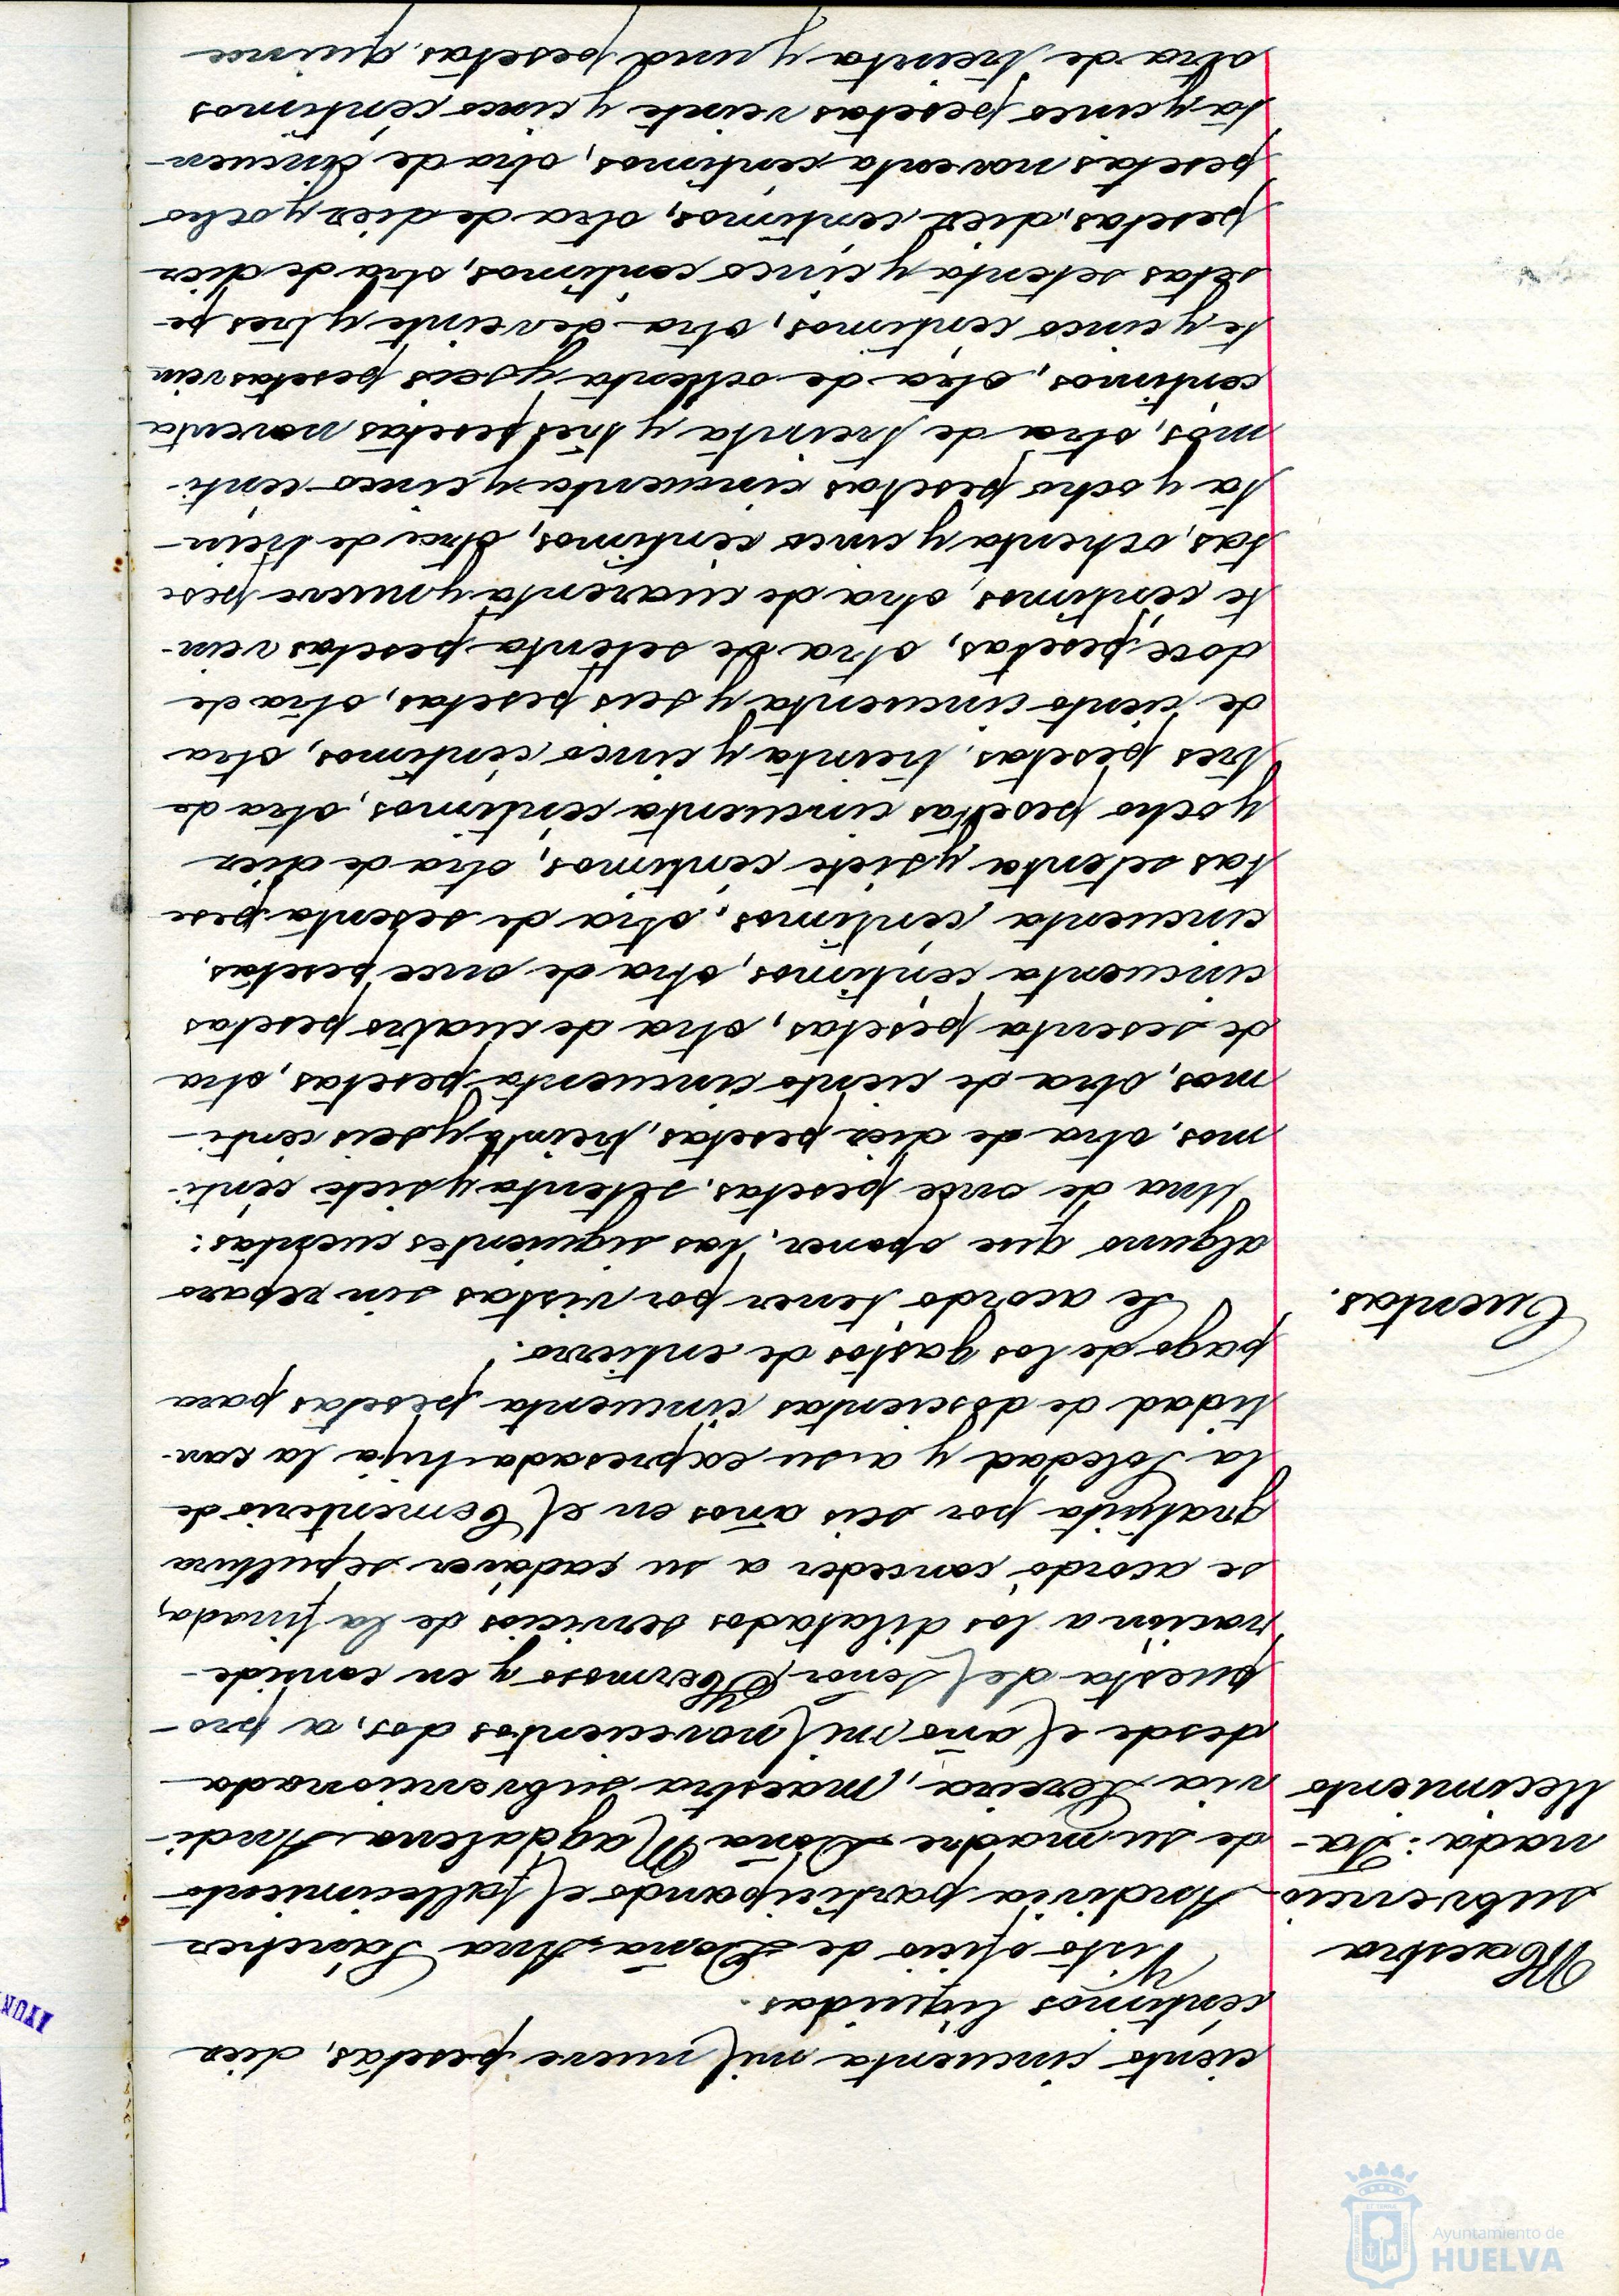 ciento cincuenta mil nueve pesetas, diez
céntimos líquidas.
Maestra
subvencio-
nada: Fa-
llecimiento
Visto oficio de Doña Ana Sánchez
Andivia participando el fallecimiento
de su madre Doña Magdalena Andi-
via Pereira, maestra subvencionada
desde el año mil novecientos dos, a pro-
puesta del Señor Hermoso y en conside-
ración a los dilatados servicios de la finada,
se acordó conceder a su cadáver sepultura
gratuita por seis años en el Cementerio de
la Soledad y a su expresada hija la can-
tidad de doscientas cincuenta pesetas para
pago de los gastos de entierro.
Cuentas.
Se acordó tener por vistas sin reparo
alguno que oponer, las siguientes cuentas:
Una de once pesetas, setenta y siete cénti-
mos, otra de diez pesetas, treinta y seis cénti-
mos, otra de ciento cincuenta pesetas, otra
de sesenta pesetas, otra de cuatro pesetas
cincuenta céntimos, otra de once pesetas,
cincuenta céntimos, otra de sesenta pese
tas setenta y siete céntimos, otra de diez
y ocho pesetas cincuenta céntimos, otra de
tres pesetas, treinta y cinco céntimos, otra
de ciento cincuenta y seis pesetas, otra de
doce pesetas, otra de setenta pesetas vein-
te céntimos, otra de cuarenta y nueve pese
tas, ochenta y cinco céntimos, otra de trein-
ta y ocho pesetas cincuenta y cinco cénti-
mos, otra de treinta y tres pesetas noventa
céntimos, otra de ochenta y seis pesetas vein
te y cinco céntimos, otra de veinte y tres pe-
setas setenta y cinco céntimos, otra de diez
pesetas, diez céntimos, otra de diez y ocho
pesetas noventa céntimos, otra de cincuen-
ta y cinco pesetas veinte y cinco céntimos
otra de treinta y una pesetas, quince
AYUN
Ayuntamiento de
HUELVA